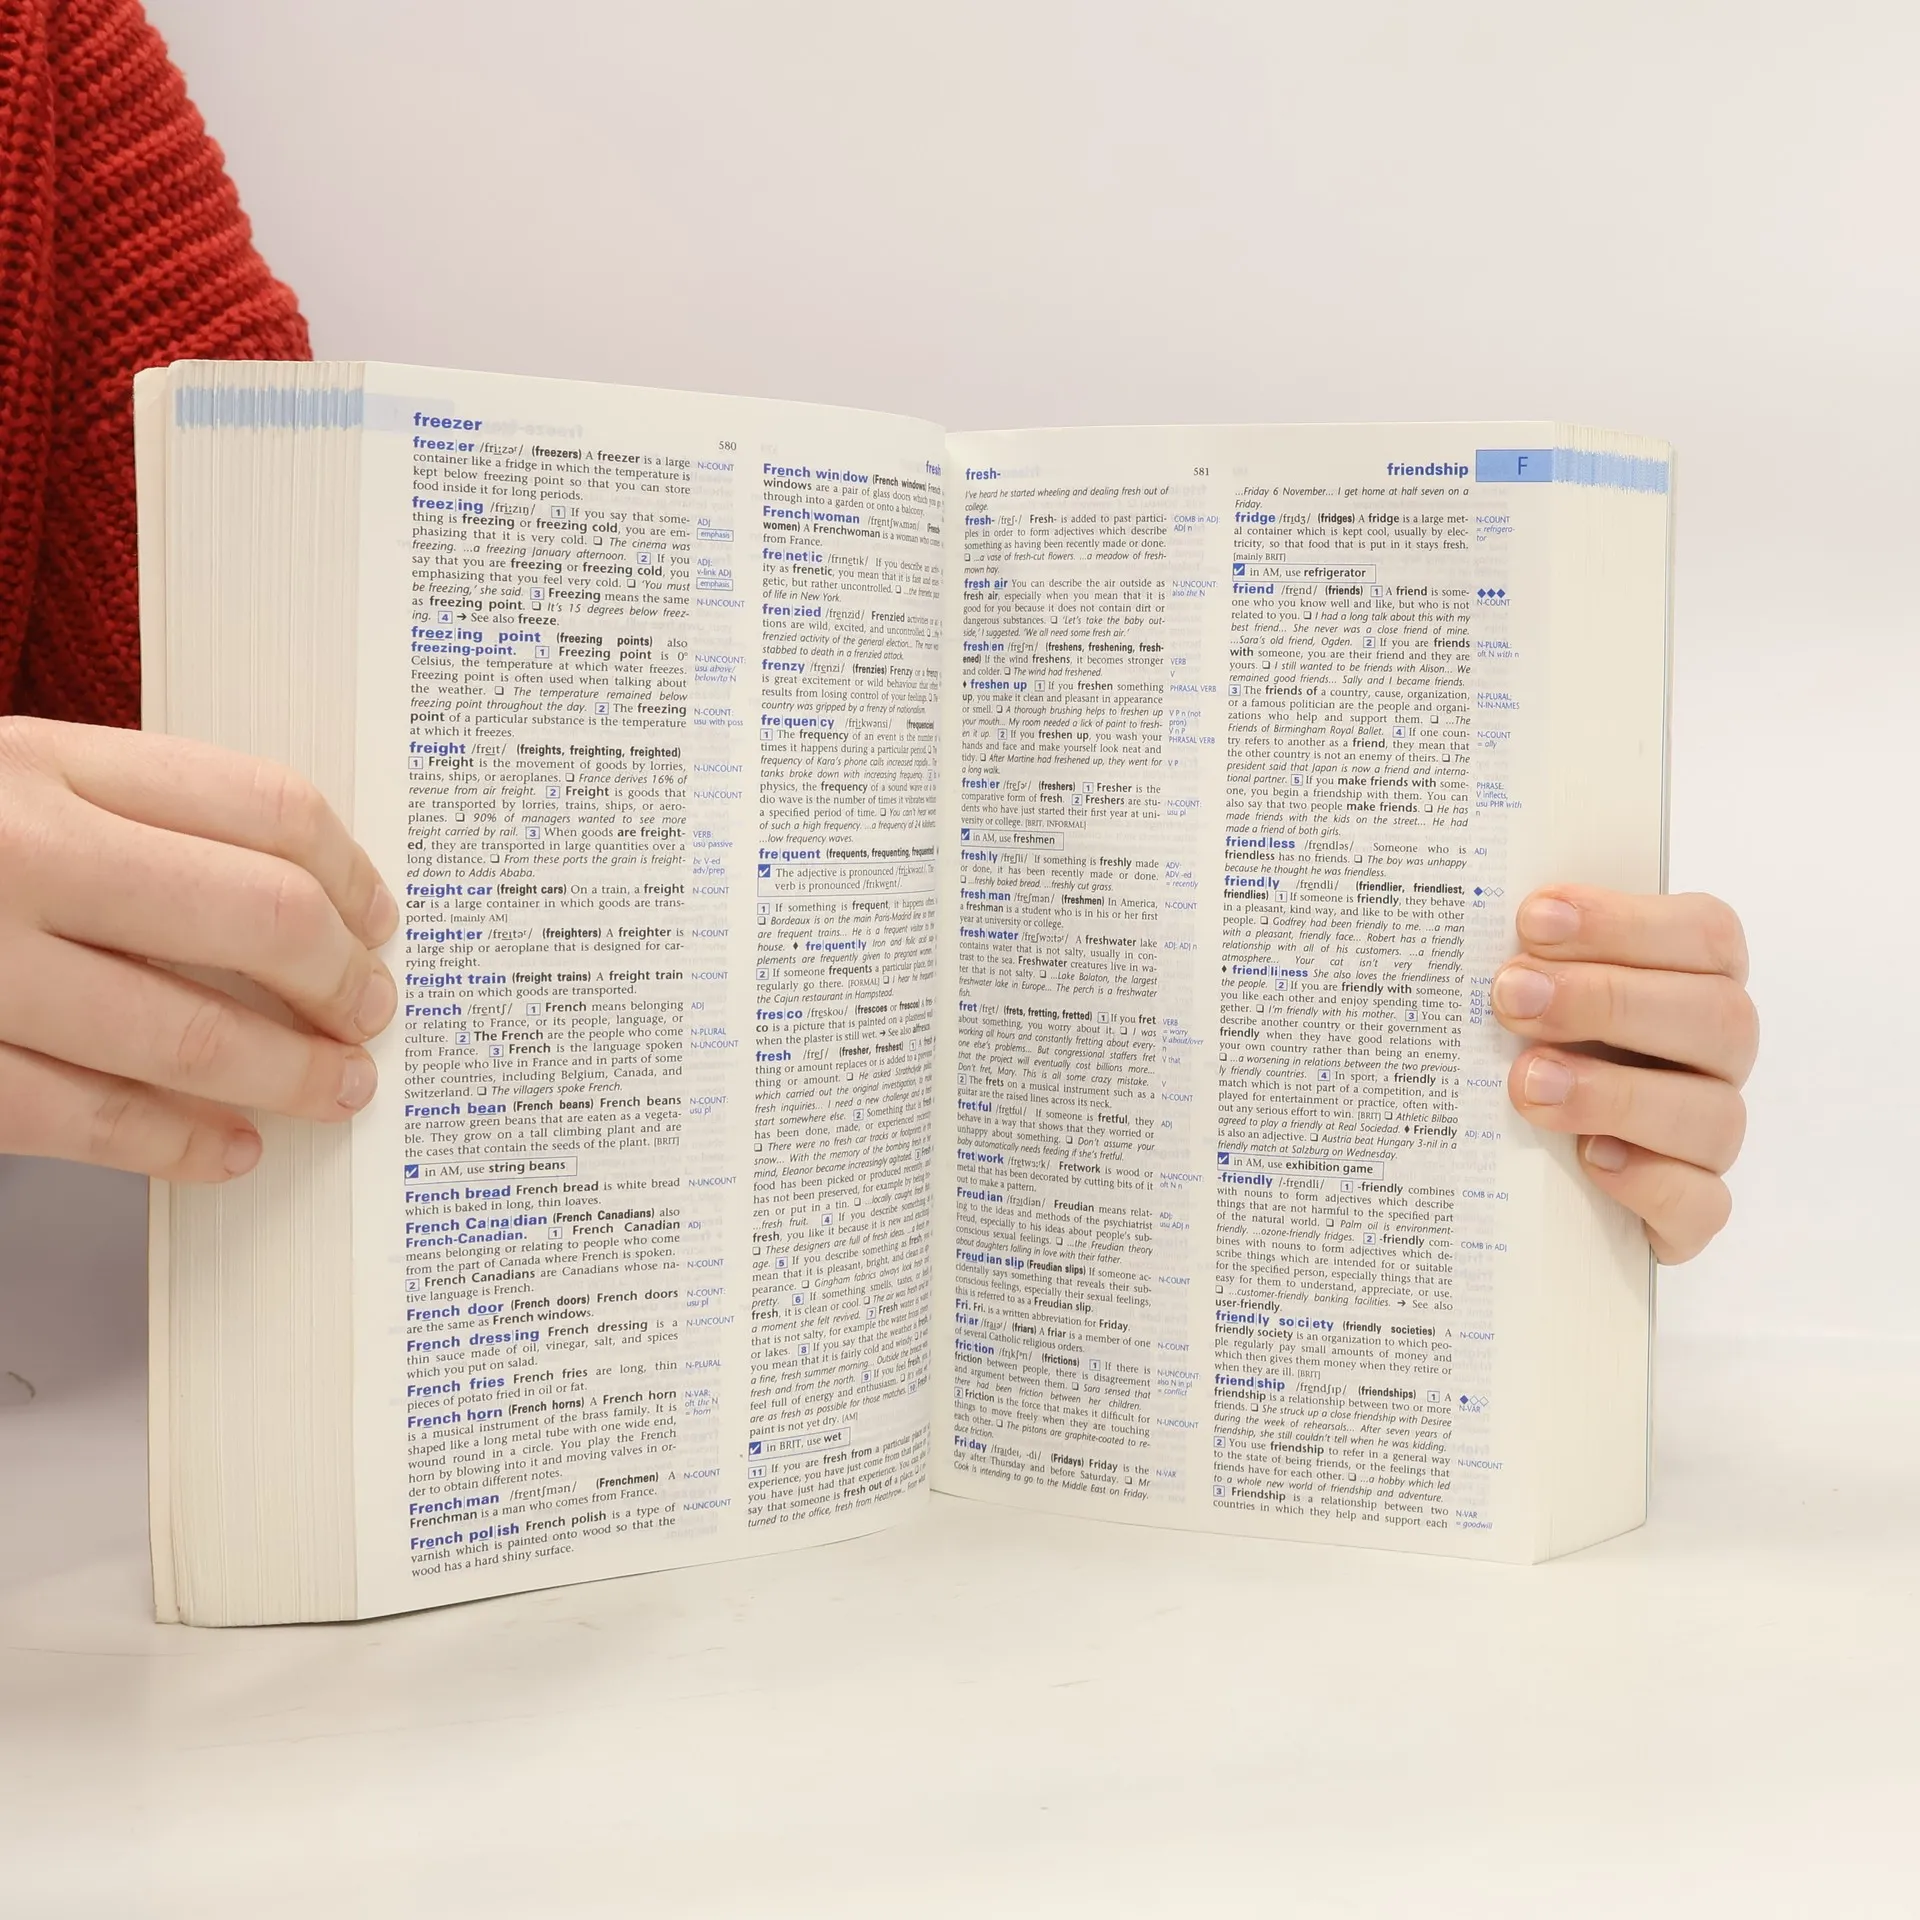 freezer
580
freez|er /friːzəʳ/ (freezers) A freezer is a large N-COUNT
container like a fridge in which the temperature is
kept below freezing point so that you can store
food inside it for long periods.
freez|ing /friːzɪŋ/ 1 If you say that some-
thing is freezing or freezing cold, you are em- ADJ
phasizing that it is very cold. ❏ The cinema was emphasis
freezing. ...a freezing January afternoon. 2 If you
say that you are freezing or freezing cold, you ADJ: v-link ADJ
emphasizing that you feel very cold. ❏ 'You must emphasis
be freezing,' she said. 3 Freezing means the same N-UNCOUNT
as freezing point. ❏ It's 15 degrees below freez-
ing. 4 ➔ See also freeze.
freez|ing point (freezing points) also
freezing-point. 1 Freezing point is 0° N-UNCOUNT:
Celsius, the temperature at which water freezes. usu above/
Freezing point is often used when talking about below/to N
the weather. ❏ The temperature remained below
freezing point throughout the day. 2 The freezing N-COUNT:
point of a particular substance is the temperature usu with poss
at which it freezes.
freight /freɪt/ (freights, freighting, freighted)
1 Freight is the movement of goods by lorries, N-UNCOUNT
trains, ships, or aeroplanes. ❏ France derives 16% of
revenue from air freight. 2 Freight is goods that N-UNCOUNT
are transported by lorries, trains, ships, or aero-
planes. ❏ 90% of managers wanted to see more
freight carried by rail. 3 When goods are freight- VERB:
ed, they are transported in large quantities over a usu passive
long distance. ❏ From these ports the grain is freight- be V-ed
ed down to Addis Ababa. adv/prep
freight car (freight cars) On a train, a freight N-COUNT
car is a large container in which goods are trans-
ported. [mainly AM]
freight|er /freɪtəʳ/ (freighters) A freighter is N-COUNT
a large ship or aeroplane that is designed for car-
rying freight.
freight train (freight trains) A freight train N-COUNT
is a train on which goods are transported.
French /frentʃ/ 1 French means belonging ADJ
or relating to France, or its people, language, or
culture. 2 The French are the people who come N-PLURAL
from France. 3 French is the language spoken N-UNCOUNT
by people who live in France and in parts of some
other countries, including Belgium, Canada, and
Switzerland. ❏ The villagers spoke French.
French bean (French beans) French beans N-COUNT:
are narrow green beans that are eaten as a vegeta- usu pl
ble. They grow on a tall climbing plant and are
the cases that contain the seeds of the plant. [BRIT]
in AM, use string beans
French bread French bread is white bread N-UNCOUNT
which is baked in long, thin loaves.
French Ca|na|dian (French Canadians) also
French-Canadian. 1 French Canadian ADJ
means belonging or relating to people who come
from the part of Canada where French is spoken.
2 French Canadians are Canadians whose na- N-COUNT
tive language is French.
French door (French doors) French doors N-COUNT:
are the same as French windows. usu pl
French dress|ing French dressing is a N-UNCOUNT
thin sauce made of oil, vinegar, salt, and spices
which you put on salad.
French fries French fries are long, thin N-PLURAL
pieces of potato fried in oil or fat.
French horn (French horns) A French horn N-VAR:
is a musical instrument of the brass family. It is oft the N
shaped like a long metal tube with one wide end, = horn
wound round in a circle. You play the French
horn by blowing into it and moving valves in or-
der to obtain different notes.
French|man /frentʃmən/ (Frenchmen) A N-COUNT
Frenchman is a man who comes from France.
French pol|ish French polish is a type of N-UNCOUNT
varnish which is painted onto wood so that the
wood has a hard shiny surface.
fresh
French win|dow (French windows) French
windows are a pair of glass doors which you
through into a garden or onto a balcony.
French|woman /frentʃwʊmən/ (French
women) A Frenchwoman is a woman who
from France.
fre|net|ic /frɪnetɪk/ If you describe an
ity as frenetic, you mean that it is fast and
getic, but rather uncontrolled. ❏ ...the frenetic
of life in New York.
fren|zied /frenzid/ Frenzied activities or
tions are wild, excited, and uncontrolled.
frenzied activity of the general election... The man
stabbed to death in a frenzied attack.
fren|zy /frenzi/ (frenzies) Frenzy or a frenzy
is great excitement or wild behaviour that
results from losing control of your feelings.
country was gripped by a frenzy of nationalism.
fre|quen|cy /friːkwənsi/ (frequencies)
1 The frequency of an event is the number
times it happens during a particular period.
frequency of Kara's phone calls increased rapidly.
tanks broke down with increasing frequency.
physics, the frequency of a sound wave or a
dio wave is the number of times it vibrates within
a specified period of time. ❏ You can't hear
of such a high frequency. ...a frequency of 24 kilohertz.
...low frequency waves.
fre|quent (frequents, frequenting, frequented)
The adjective is pronounced /friːkwənt/. The
verb is pronounced /frɪkwent/.
1 If something is frequent, it happens often.
❏ Bordeaux is on the main Paris-Madrid line so there
are frequent trains... He is a frequent visitor to the
house. ♦ fre|quent|ly Iron and folic acid
plements are frequently given to pregnant women.
2 If someone frequents a particular place,
regularly go there. [FORMAL] ❏ I hear he frequents
the Cajun restaurant in Hampstead.
fres|co /freskoʊ/ (frescoes or frescos)
co is a picture that is painted on a plastered
when the plaster is still wet. ➔ See also alfresco.
fresh /freʃ/ (fresher, freshest) 1
thing or amount replaces or is added to a previous
thing or amount. ❏ He asked Strathclyde police,
which carried out the original investigation, to make
fresh inquiries... I need a new challenge and a
start somewhere else. 2 Something that is fresh
has been done, made, or experienced recently.
❏ There were no fresh car tracks or footprints in the
snow... With the memory of the bombing fresh in
mind, Eleanor became increasingly agitated.
food has been picked or produced recently,
has not been preserved, for example by being
zen or put in a tin. ❏ ...locally caught fresh
...fresh fruit. 4 If you describe something as
fresh, you like it because it is new and exciting.
❏ These designers are full of fresh ideas.
age. 5 If you describe something as fresh, you
mean that it is pleasant, bright, and clean in
pearance. ❏ Gingham fabrics always look fresh and
pretty. 6 If something smells, tastes,
fresh, it is clean or cool. ❏ The air was fresh and
a moment she felt revived. 7 Fresh water is
that is not salty, for example the water
or lakes. 8 If you say that the weather is fresh,
you mean that it is fairly cold and windy.
a fine, fresh summer morning... Outside the breeze was
fresh and from the north. 9 If you feel fresh,
feel full of energy and enthusiasm.
are as fresh as possible for those matches.
paint is not yet dry. [AM]
in BRIT, use wet
11 If you are fresh from a particular
experience, you have just come from that place
you have just had that experience. You can
say that someone is fresh out of a place.
turned to the office, fresh from Heathrow...
fresh-
581
friendship
F
I've heard he started wheeling and dealing fresh out of
college.
fresh- /freʃ-/ Fresh- is added to past partici- COMB in ADJ:
ples in order to form adjectives which describe ADJ n
something as having been recently made or done.
❏ ...a vase of fresh-cut flowers. ...a meadow of fresh-
mown hay.
fresh air You can describe the air outside as N-UNCOUNT:
fresh air, especially when you mean that it is also the N
good for you because it does not contain dirt or
dangerous substances. ❏ 'Let's take the baby out-
side,' I suggested. 'We all need some fresh air.'
fresh|en /freʃən/ (freshens, freshening, fresh-
ened) If the wind freshens, it becomes stronger VERB
and colder. ❏ The wind had freshened. V
♦ freshen up 1 If you freshen something PHRASAL VERB
up, you make it clean and pleasant in appearance
or smell. ❏ A thorough brushing helps to freshen up V P n (not
your mouth... My room needed a lick of paint to fresh- pron)
en it up. 2 If you freshen up, you wash your V n P
hands and face and make yourself look neat and PHRASAL VERB
tidy. ❏ After Martine had freshened up, they went for V P
a long walk.
fresh|er /freʃəʳ/ (freshers) 1 Fresher is the
comparative form of fresh. 2 Freshers are stu- N-COUNT:
dents who have just started their first year at uni- usu pl
versity or college. [BRIT, INFORMAL]
in AM, use freshmen
fresh|ly /freʃli/ If something is freshly made ADV:
or done, it has been recently made or done. ADV -ed
❏ ...freshly baked bread. ...freshly cut grass. = recently
fresh|man /freʃmən/ (freshmen) In America, N-COUNT
a freshman is a student who is in his or her first
year at university or college.
fresh|water /freʃwɔːtəʳ/ A freshwater lake ADJ: ADJ n
contains water that is not salty, usually in con-
trast to the sea. Freshwater creatures live in wa-
ter that is not salty. ❏ ...Lake Balaton, the largest
freshwater lake in Europe... The perch is a freshwater
fish.
fret /fret/ (frets, fretting, fretted) 1 If you fret VERB
about something, you worry about it. ❏ I was = worry
working all hours and constantly fretting about every- V about/over
one else's problems... But congressional staffers fret n
that the project will eventually cost billions more... V that
Don't fret, Mary. This is all some crazy mistake. V
2 The frets on a musical instrument such as a N-COUNT
guitar are the raised lines across its neck.
fret|ful /fretfʊl/ If someone is fretful, they ADJ
behave in a way that shows that they worried or
unhappy about something. ❏ Don't assume your
baby automatically needs feeding if she's fretful.
fret|work /fretwɜːʳk/ Fretwork is wood or N-UNCOUNT:
metal that has been decorated by cutting bits of it oft N n
out to make a pattern.
Freud|ian /frɔɪdiən/ Freudian means relat- ADJ:
ing to the ideas and methods of the psychiatrist usu ADJ n
Freud, especially to his ideas about people's sub-
conscious sexual feelings. ❏ ...the Freudian theory
about daughters falling in love with their father.
Freud|ian slip (Freudian slips) If someone ac- N-COUNT
cidentally says something that reveals their sub-
conscious feelings, especially their sexual feelings,
this is referred to as a Freudian slip.
Fri. Fri. is a written abbreviation for Friday.
fri|ar /fraɪəʳ/ (friars) A friar is a member of one N-COUNT
of several Catholic religious orders.
fric|tion /frɪkʃən/ (frictions) 1 If there is N-UNCOUNT:
friction between people, there is disagreement also N in pl
and argument between them. ❏ Sara sensed that = conflict
there had been friction between her children.
2 Friction is the force that makes it difficult for N-UNCOUNT
things to move freely when they are touching
each other. ❏ The pistons are graphite-coated to re-
duce friction.
Fri|day /fraɪdeɪ, -di/ (Fridays) Friday is the N-VAR
day after Thursday and before Saturday. ❏ Mr
Cook is intending to go to the Middle East on Friday.
...Friday 6 November... I get home at half seven on a
Friday.
fridge /frɪdʒ/ (fridges) A fridge is a large met- N-COUNT
al container which is kept cool, usually by elec- = refrigera-
tricity, so that food that is put in it stays fresh. tor
[mainly BRIT]
in AM, use refrigerator
friend /frend/ (friends) 1 A friend is some- ◆◆◆
one who you know well and like, but who is not N-COUNT
related to you. ❏ I had a long talk about this with my
best friend... She never was a close friend of mine.
...Sara's old friend, Ogden. 2 If you are friends N-PLURAL:
with someone, you are their friend and they are oft N with n
yours. ❏ I still wanted to be friends with Alison... We
remained good friends... Sally and I became friends.
3 The friends of a country, cause, organization, N-PLURAL:
or a famous politician are the people and organi- N-IN-NAMES
zations who help and support them. ❏ ...The
Friends of Birmingham Royal Ballet. 4 If one coun- N-COUNT
try refers to another as a friend, they mean that = ally
the other country is not an enemy of theirs. ❏ The
president said that Japan is now a friend and interna-
tional partner. 5 If you make friends with some- PHRASE:
one, you begin a friendship with them. You can V inflects,
also say that two people make friends. ❏ He has usu PHR with
made friends with the kids on the street... He had n
made a friend of both girls.
friend|less /frendləs/ Someone who is ADJ
friendless has no friends. ❏ The boy was unhappy
because he thought he was friendless.
friend|ly /frendli/ (friendlier, friendliest, ◆◇◇
friendlies) 1 If someone is friendly, they behave ADJ
in a pleasant, kind way, and like to be with other
people. ❏ Godfrey had been friendly to me. ...a man
with a pleasant, friendly face... Robert has a friendly
relationship with all of his customers. ...a friendly
atmosphere... Your cat isn't very friendly.
♦ friend|li|ness She also loves the friendliness of
the people. 2 If you are friendly with someone,
you like each other and enjoy spending time to-
gether. ❏ I'm friendly with his mother. 3 You can
describe another country or their government as ADJ
friendly when they have good relations with
your own country rather than being an enemy.
❏ ...a worsening in relations between the two previous-
ly friendly countries. 4 In sport, a friendly is a N-COUNT
match which is not part of a competition, and is
played for entertainment or practice, often with-
out any serious effort to win. [BRIT] ❏ Athletic Bilbao
agreed to play a friendly at Real Sociedad. ♦ Friendly ADJ: ADJ n
is also an adjective. ❏ Austria beat Hungary 3-nil in a
friendly match at Salzburg on Wednesday.
in AM, use exhibition game
-friendly /-frendli/ 1 -friendly combines COMB in ADJ
with nouns to form adjectives which describe
things that are not harmful to the specified part
of the natural world. ❏ Palm oil is environment-
friendly. ...ozone-friendly fridges. 2 -friendly com- COMB in ADJ
bines with nouns to form adjectives which de-
scribe things which are intended for or suitable
for the specified person, especially things that are
easy for them to understand, appreciate, or use.
❏ ...customer-friendly banking facilities. ➔ See also
user-friendly.
friend|ly so|ci|ety (friendly societies) A N-COUNT
friendly society is an organization to which peo-
ple regularly pay small amounts of money and
which then gives them money when they retire or
when they are ill. [BRIT]
friend|ship /frendʃɪp/ (friendships) 1 A ◆◇◇
friendship is a relationship between two or more N-VAR
friends. ❏ She struck up a close friendship with Desiree
during the week of rehearsals... After seven years of
friendship, she still couldn't tell when he was kidding.
2 You use friendship to refer in a general way N-UNCOUNT
to the state of being friends, or the feelings that
friends have for each other. ❏ ...a hobby which led
to a whole new world of friendship and adventure.
3 Friendship is a relationship between two N-VAR
countries in which they help and support each = goodwill